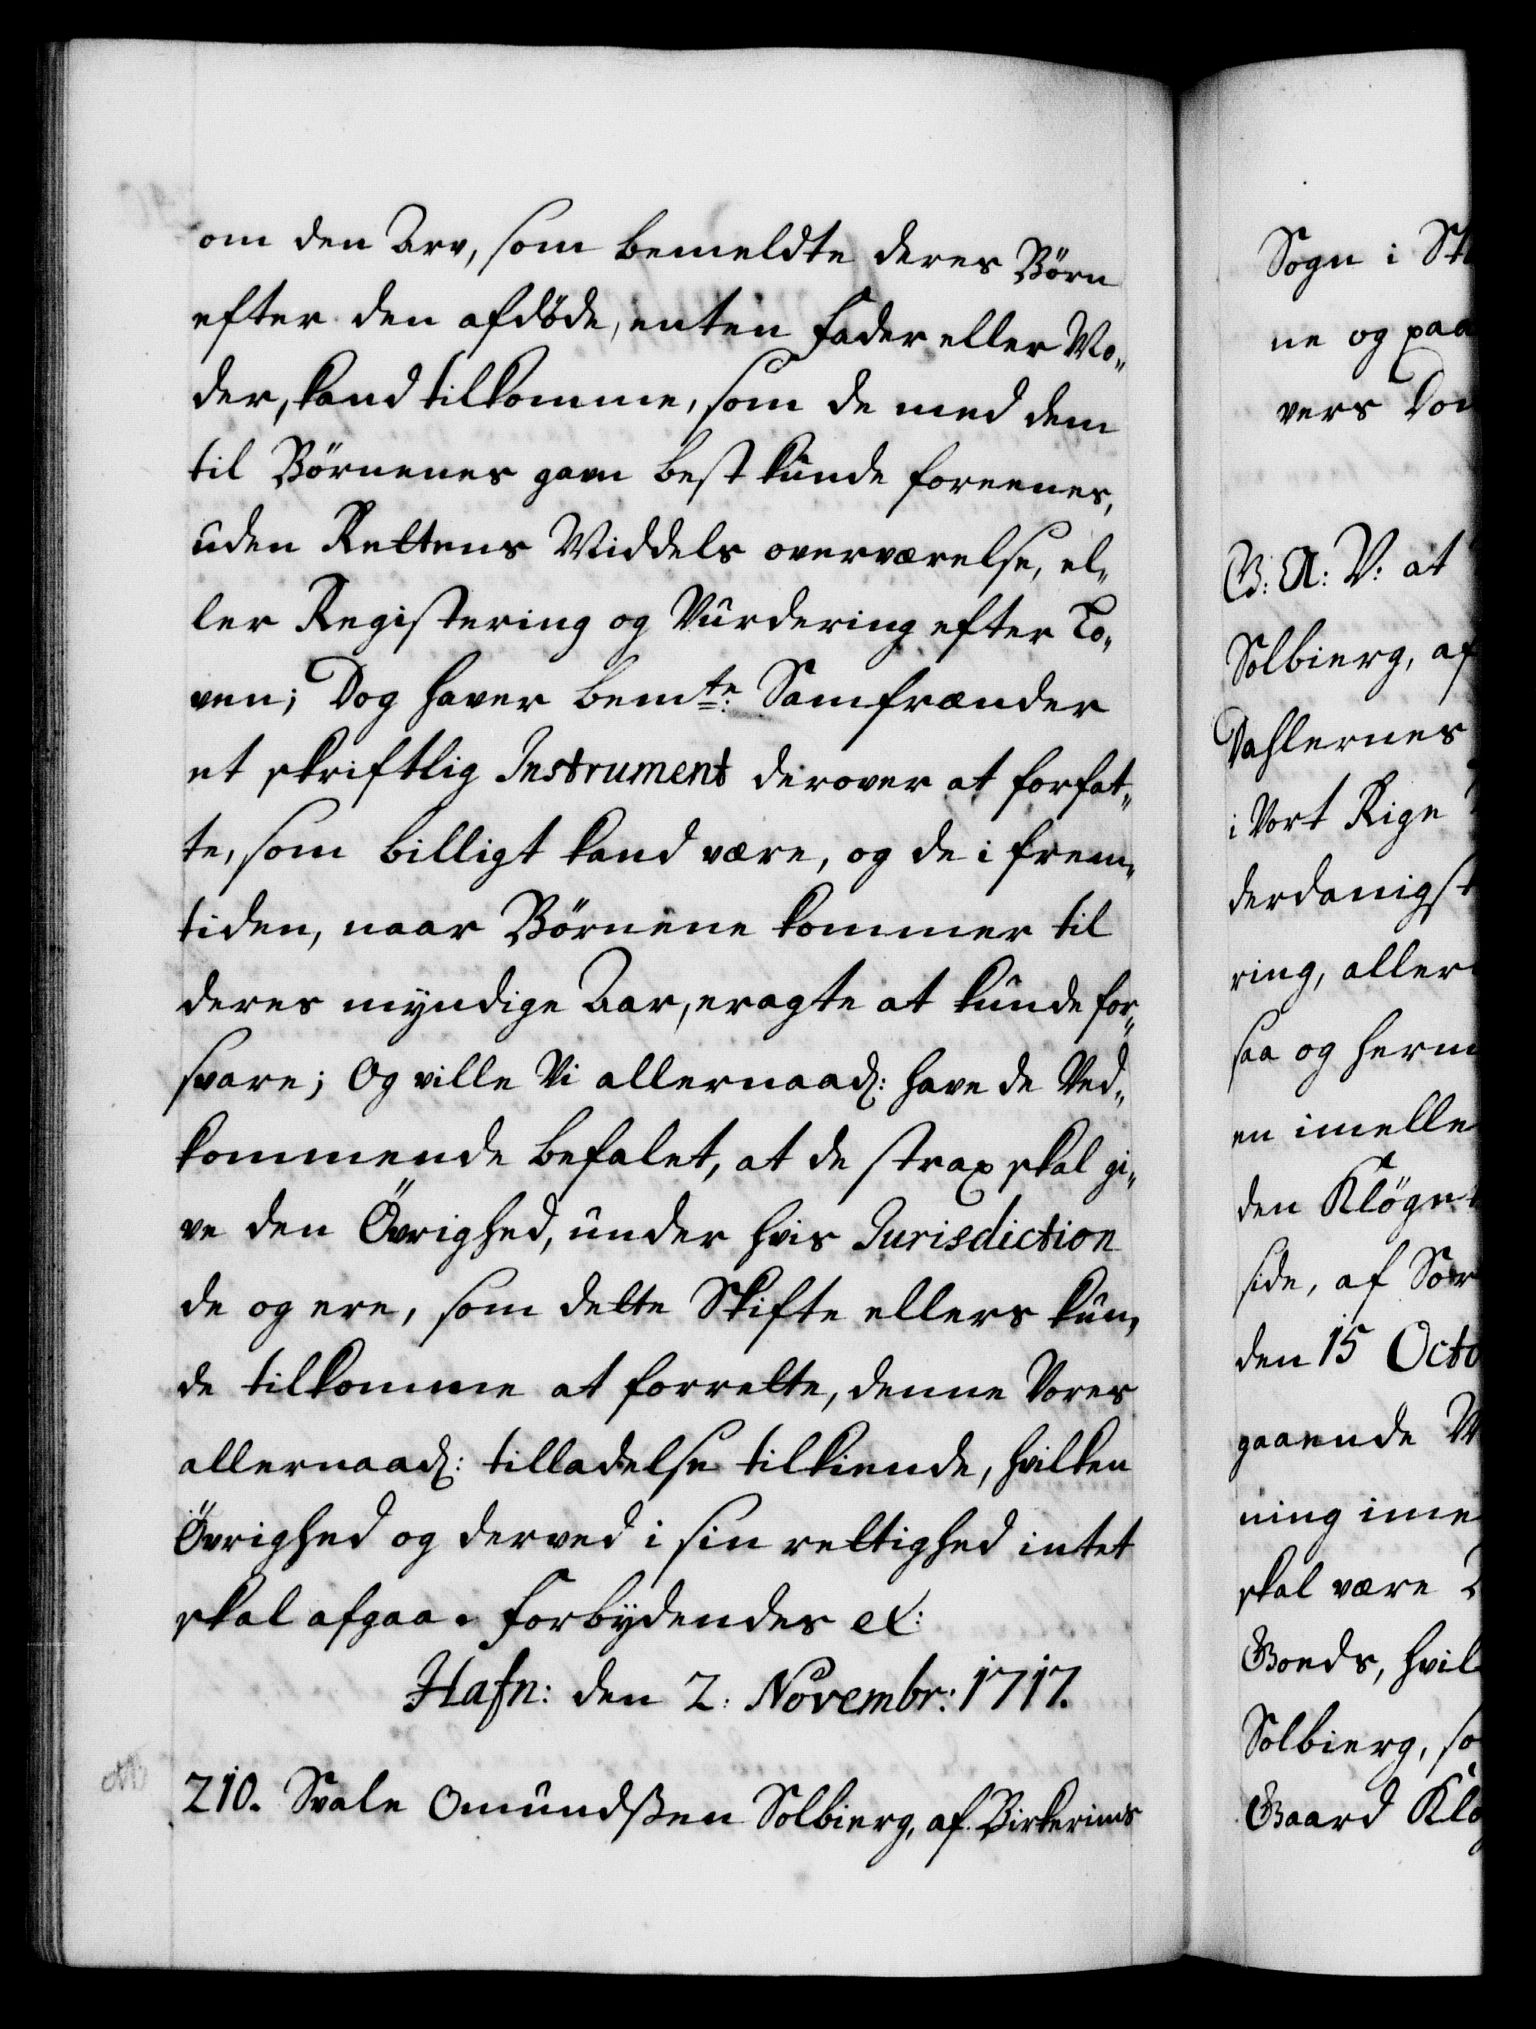 om den Arv, som bemeldte deres Børn
efter den afdöde, enten Fader eller Mo„
der, kand tilkomme, som de med dem
til Børnenes gavn best kunde foreenes,
uden Rettens Middels overværelse, el„
ler Registering og Vurdering efter Lo„
ven; Dog haver bemte: Samfrænder
et skriftlig Instrument derover at forfat„
te, som billigt kand være, og de i frem„
tiden, naar Børnene kommer til
deres myndige Aar, eragte at kunde for„
svare; Og ville Vi allernaad: have de Ved„
kommende befalet, at de strax skal gi„
ve den Övrighed, under hvis Jurisdiction
de og ere, som dette Skifte ellers kun„
de tilkomme at forrette, denne Vores
allernaad: tilladelse tilkiende, hvilken
Övrighed og derved i sin rettighed intet
skal afgaa. Forbydendes etc:
Hafn: den 2: Novembr: 1717.
210. Svale Omundßen Solbierg, af Birkerims
Sogn i St
ne og paa
vers Dom
G: A: V: at
Solbierg, af
Dahlernes
i Vort Rige
derdanigst
ring, aller
saa og herm
en imelle
den Kløgt
side, af Sør
den 15 Octo
gaaende M
ning ime
skal være
Goeds, hvil
Solbierg, so
Gaard Klø